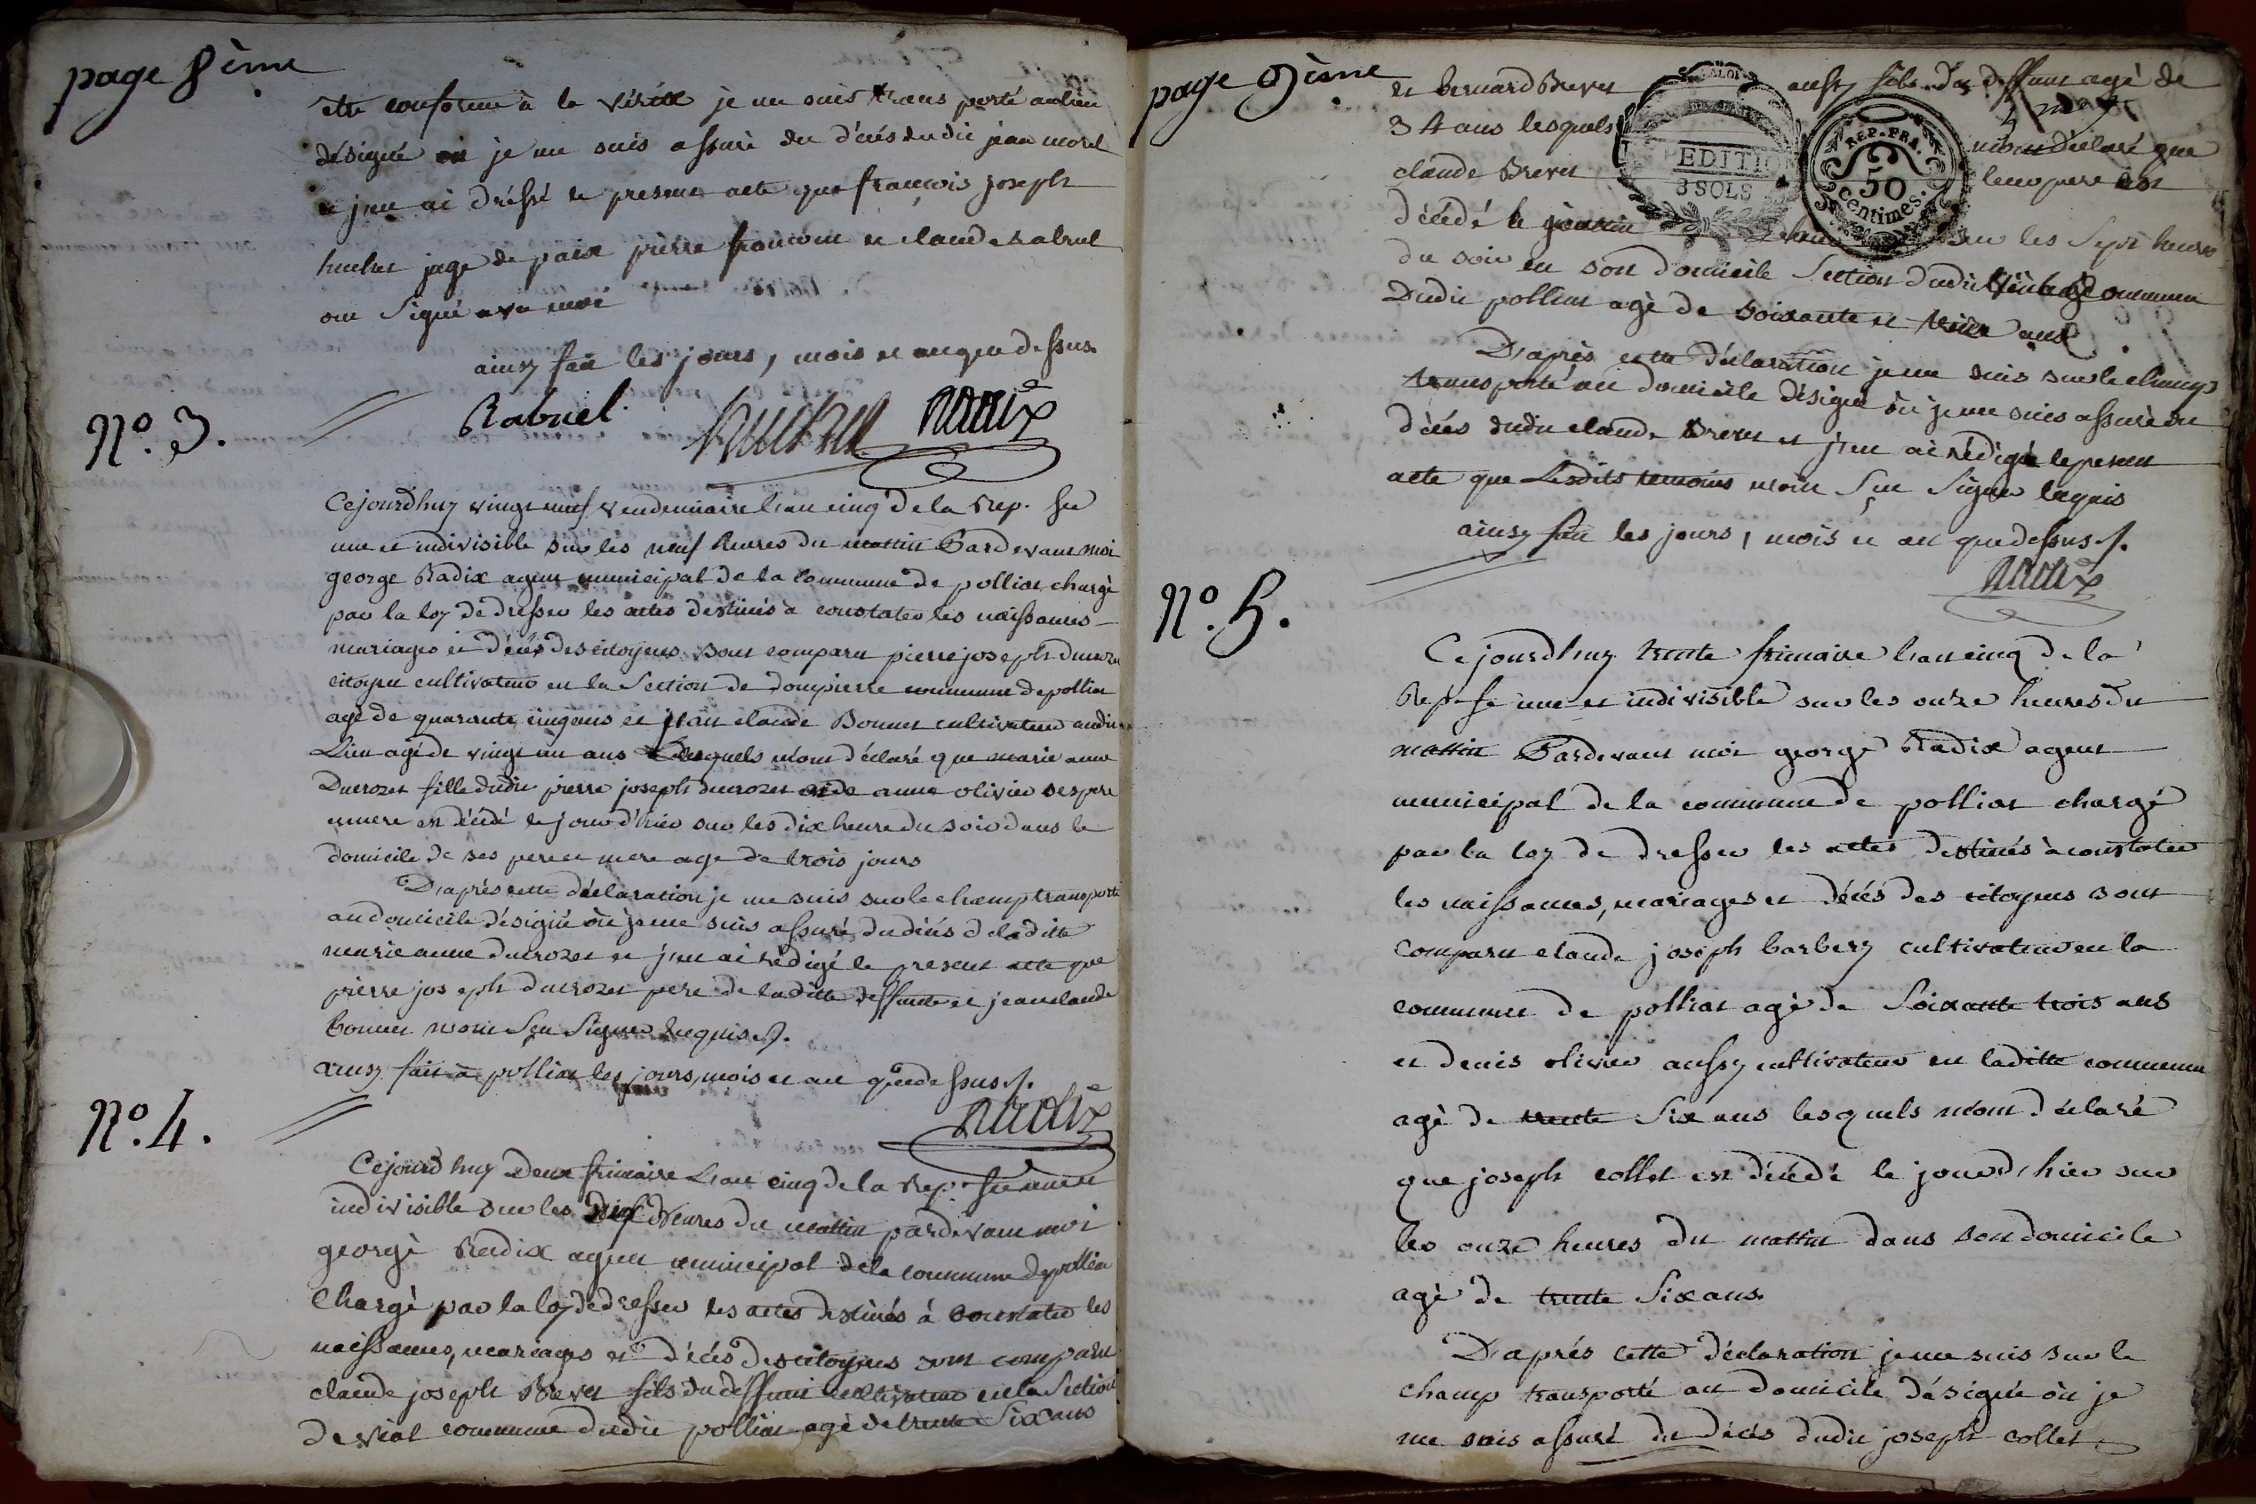 page 8ème
ette conforme à la vérité je me suis trans porté au lieu
désigné ou je me suis assuré du décés dudit jean morel
et j'en ai dréssé le present acte que françois joseph
huchet juge de paix pierre et claude rabuel
ont signé avec moi
ainsy fait les jours, mois et an que dessus.
Rabuel. huchet Radix
N°. 3.
Cejourd'huy vingt neuf vendemiaire l'an cinq de la Rep. fse
une et indivisible sur les neuf heures du mattin Pardevant moi
george Radix agent municipal de la Commune de polliat chargé
par la loy de dresser les actes destinés a constater les naissances
mariages et décés des citoyens sont comparu pierre joseph ducrozet
citoyen cultivateur en la Section de dompierre commune de polliat
agé de quarante cinq ans et jean claude Bonnet cultivateur audit
Lieu agé de vingt un ans Lesquels m'ont déclaré que marie anne
Ducrozet fille dudit pierre joseph ducrozet et de anne olivier ses pere
et mere est décédé le jour d'hier sur les dix heure du soir dans le
domicile de ses pere et mere agé de trois jours
D'après cette déclaration je me suis sur le champ transporté
au domicile désigné où je me suis assuré du décés de laditte
marie anne ducrozet et j'en ai rédigé le present acte que
pierre joseph ducrozet pere de laditte deffunte et jean claude
bonnet n'ont sçu signer requis ./.
ainsy fait à polliat les jours, mois et an que dessus ./.
Radix
N°. 4.
Cejourd'huy Deux frimaire L'an cinq de la Rep. fse une et
indivisible sur les Dix heures du mattin pardevant moi
george Radix agent municipal de la commune de polliat
Chargé par la loy de dresser les actes destinés à constater les
naissances, mariages et décés des citoyens sont comparu
claude joseph Brevet fils du deffunt cultivateur en la Section
de viat commune dudit polliat agé de trente Six ans
page 9ème
et bernard Brevet aussy fils du deffunt agé de
34 ans lesquels m'ont déclaré que
claude Brevet leur pere est
décédé le les Sept heures
du soir en son domicile Section dudit commune
Dudit polliat agé de soixante et treize ans.
EXPEDITION
3 SOLS
REP. FRA.
50
centimes.
D'après cette déclaration je me suis sur le champ
transporté au domicile désigné où je me suis assuré du
décés dudit claude Brevet et j'en ai rédigé le present
acte que Lesdits temoins n'ont Sçu Signer requis
ainsy fait les jours, mois et an que dessus ./.
Radix
N°. 5.
Cejourd'huy trente frimaire l'an cinq de la
Rep. fse une et indivisible sur les onze heures du
mattin Pardevant moi george Radix agent
municipal de la commune de polliat chargé
par la loy de dresser les actes destinés à constater
les naissances, mariages et décés des citoyens sont
comparu claude joseph barbery cultivateur en la
commune de polliat agé de Soixante trois ans
et denis olivier aussy cultivateur en laditte commune
agé de trente Six ans lesquels m'ont déclaré
que joseph collet est décédé le jour d'hier sur
les onze heures du mattin dans son domicile
agé de trente Six ans.
D'après cette déclaration je me suis sur le
champ transporté au domicile désigné où je
me suis assuré du décés dudit joseph collet